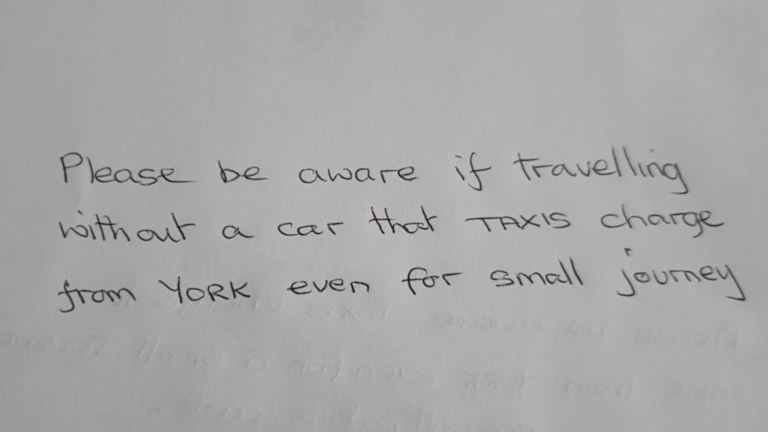 Please be aware if travelling
without a car that TAXIS charge
from YORK even for small journey